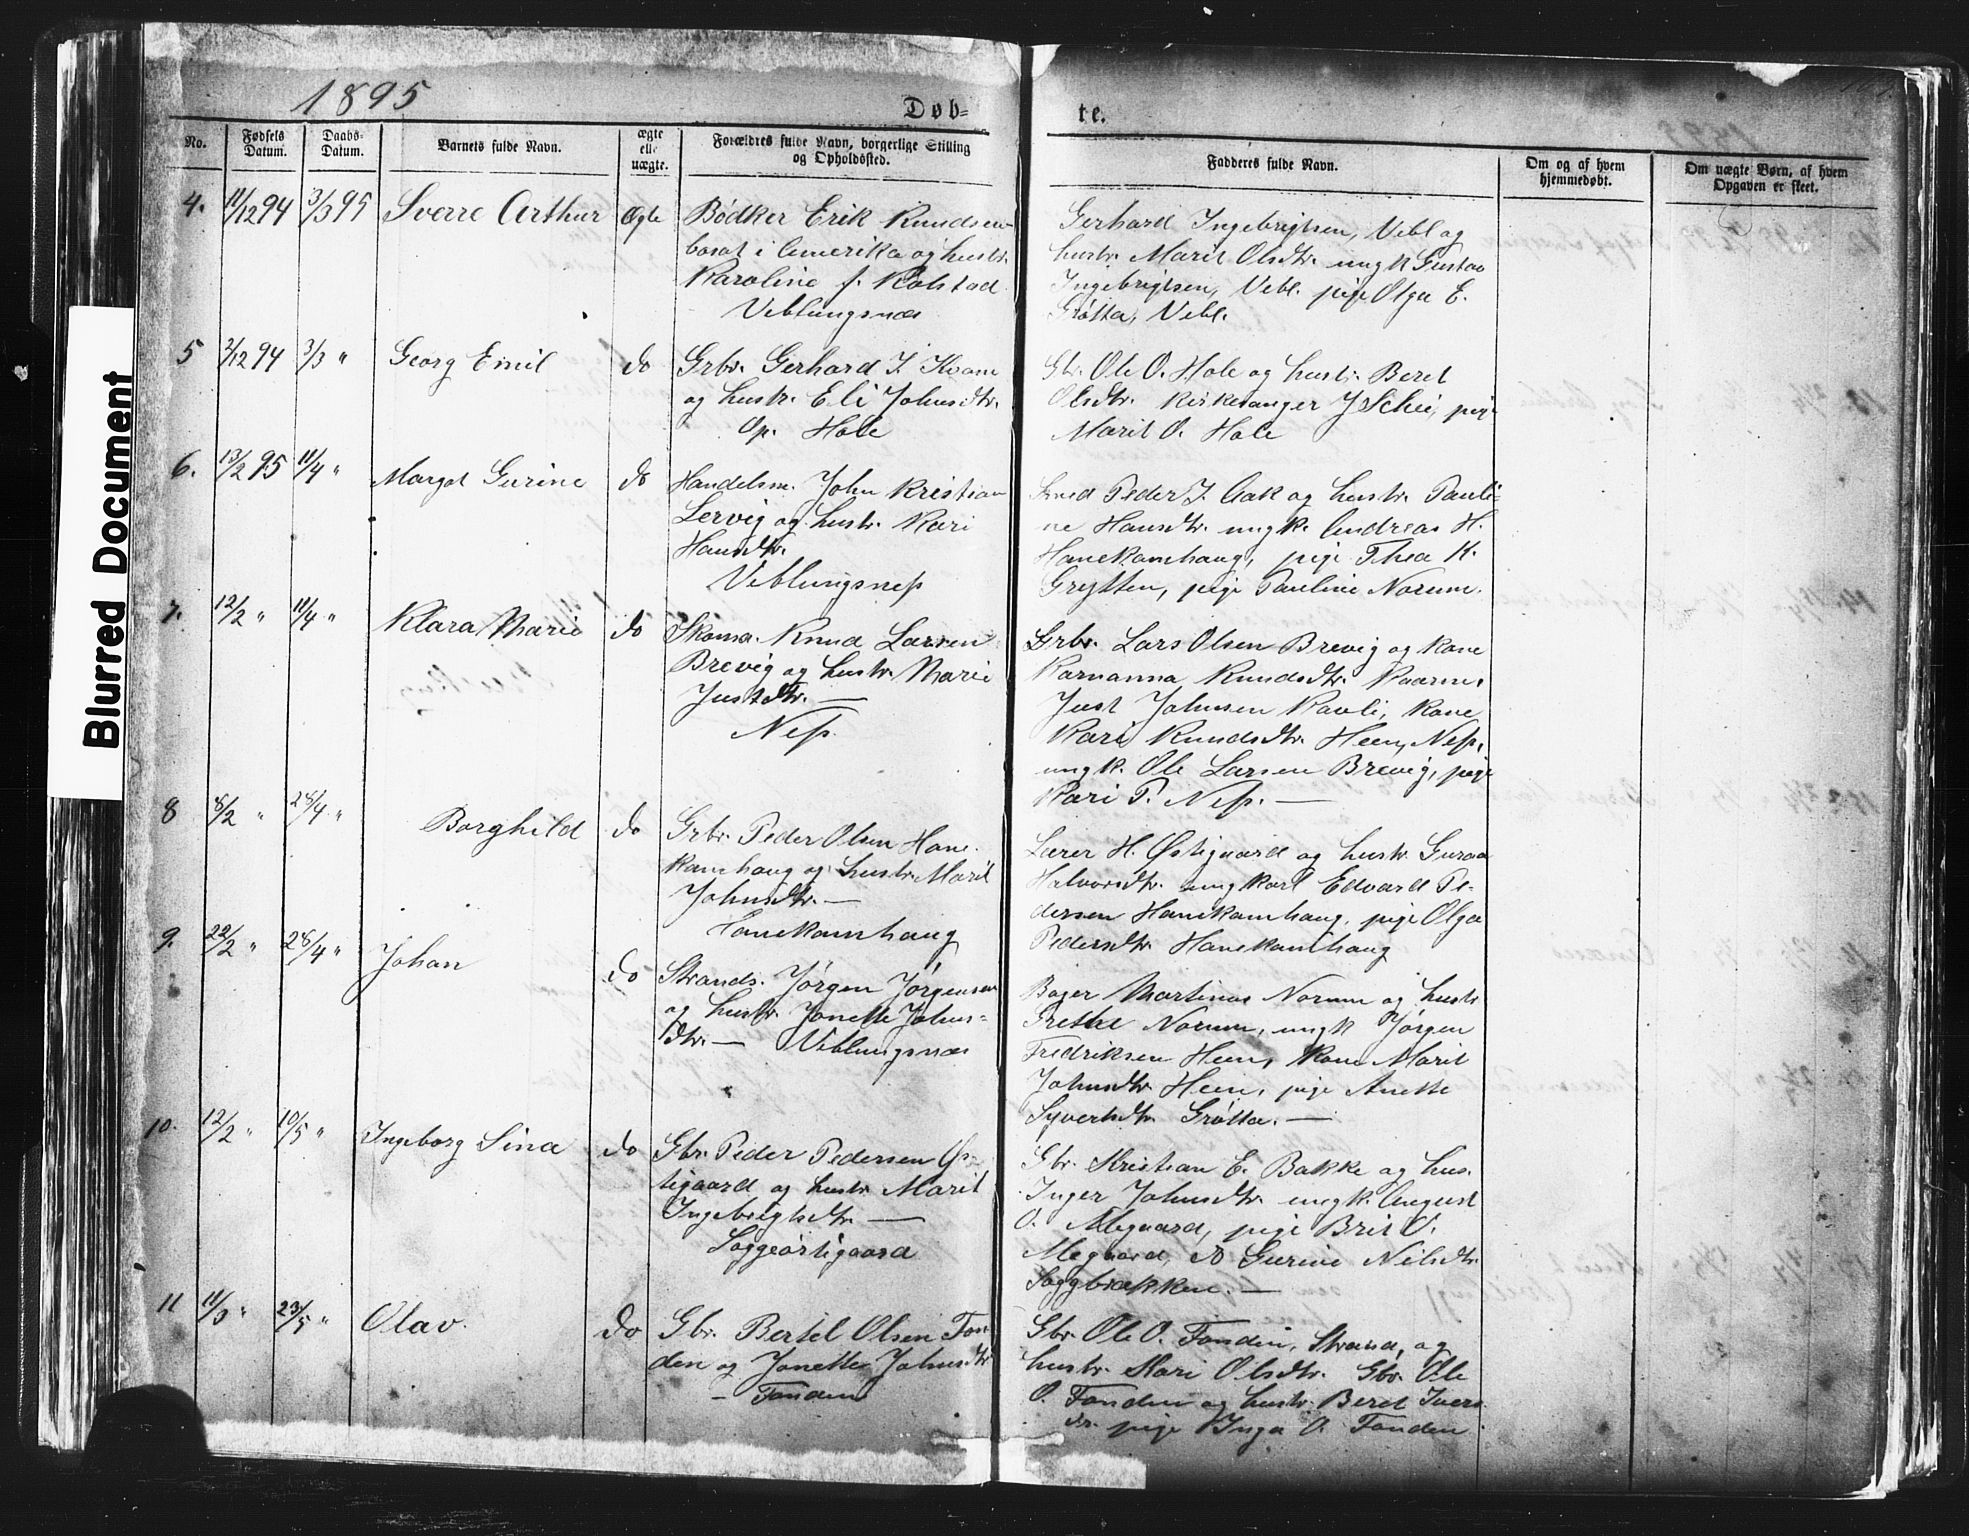 Blurred Document
1895
Døb-
te.
No.
Fødsels Datum.
Daabs-Datum.
Barnets fulde Navn.
ægte elle uægte.
Forældres fulde Navn, borgerlige Stilling
og Opholdssted.
Fadderes fulde Navn.
Om og af hvem
hjemmedøbt.
Om uægte Børn, af hvem
Opgaven er skeet.
4. 11/12 94 3/3 95 Sverre Arthur Ægte Bødker Erik Knudsen
bosat i Amerika og hustr.
Karoline f. Kolstad
Veblungsnæs
Gerhard Ingebrigtsen, Vebl og
hustr. Marit Olsdtr. ungk Gustav
Ingebrigtsen, Vebl. pige Olga E.
Grøtta, Vebl.
5 2/12 94 3/3 " Georg Emil do Grbr. Gerhard J. Kvam
og hustr. Eli Johnsdtr.
Op. Hole
Gbr. Ole O. Hole og hustr. Beret
Olsdtr. Kirkesanger J Schei, pige
Marit O. Hole
6. 13/2 95 11/4 " Margot Gurine do Handelsm. John Kristian
Lervig og hustr. Kari
Hansdtr.
Veblungsness
Smed Peder J. Aak og hustr. Pauli-
ne Hansdtr. ungk. Andreas H.
Hanekamhaug, pige Thea K.
Grytten, pige Pauline Norum.
7. 12/2 " 11/4 " Klara Marie do Skoma. Knud Larsen
Brevig og hustr. Marie
Justdtr. —
Ness.
Grbr. Lars Olsen Brevig og kone
Karnanna Knudsdtr.
Just Johnsen Kavli, kone
Kari Knudsdtr. Heen, Ness,
ungk. Ole Larsen Brevig, pige
Kari P. Ness. —
8 8/2 " 28/4 " Borghild do Grbr. Peder Olsen Hane-
kamhaug og hustr. Marit
Johnsdtr. —
Hanekamhaug
Lærer H. Østigaard og hustr. Guraa
Halvorsdtr. ungkarl Edvard Pe-
dersen Hanekamhaug, pige Olga
Pedersdtr. Hanekamhaug
9. 22/2 " 28/4 " Johan do Strands. Jørgen Jørgensen
og hustr. Jonette Johns-
dtr. — Veblungsnæs
Bager Martinus Norum og hustr
Grethe Norum, ungk Jørgen
Fredriksen Heen, kone Marit
Johnsdtr. Heen, pige Anette
Syvertsdtr. Grøtta. —
10. 12/2 " 10/5 " Ingeborg Lina do Gbr. Peder Pedersen Øs-
tigaard og hustr Marit
Ingebrigtsdtr. —
Soggeøstigaard
Gbr. Kristian E. Bakke og hus.
Inger Johnsdtr. ungk. August
O. Megaard, pige Brit O.
Megaard, do Gurine Nilsdtr.
Soggbrækken. —
11 11/3 " 23/5 " Olav. do Gbr. Bertel Olsen Fan-
den og Jonette Johnsdtr
— Fanden
Gbr. Ole O. Fanden, Strand, og
hustr. Kari Olsdtr. Gbr. Ole
O. Fanden og hustr. Beret Ivers
dr. pige Inga O. Fanden